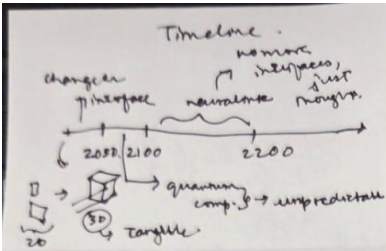 Timeline.
no more
interfaces,
just
thoughts.
change in
interface
neuralink
2050 2100 2200
quantum
comp.s → unpredictable
3D
2D
Tangible.